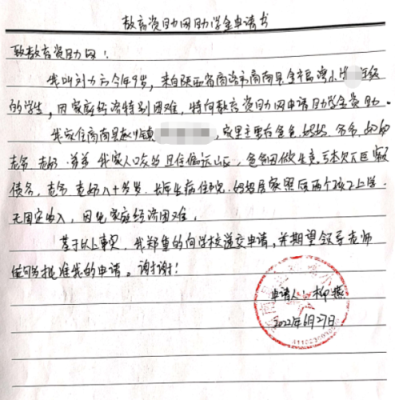 教育资助网助学金申请书
敬教育资助网：
我叫刘力云今年9岁，来自陕西省商洛市商南县金福湾小学 年级
的学生，因家庭经济特别困难，特向教育资助网申请助学金资助。
我家住商南县 镇 ，家里主要有爸爸、妈妈、爷爷、奶奶
我家人口众多且住偏远山区，爸爸因做生意亏本欠下巨额
债务，爷爷 奶奶八十岁 长年生病住院，妈妈是家照顾两个孩子上学
无固定收入，因此家庭经济困难。
基于以上事实，我郑重的向学校递交申请，并期望领导老师
能够批准我的申请。谢谢！
申请人：柳
2022年6月27日